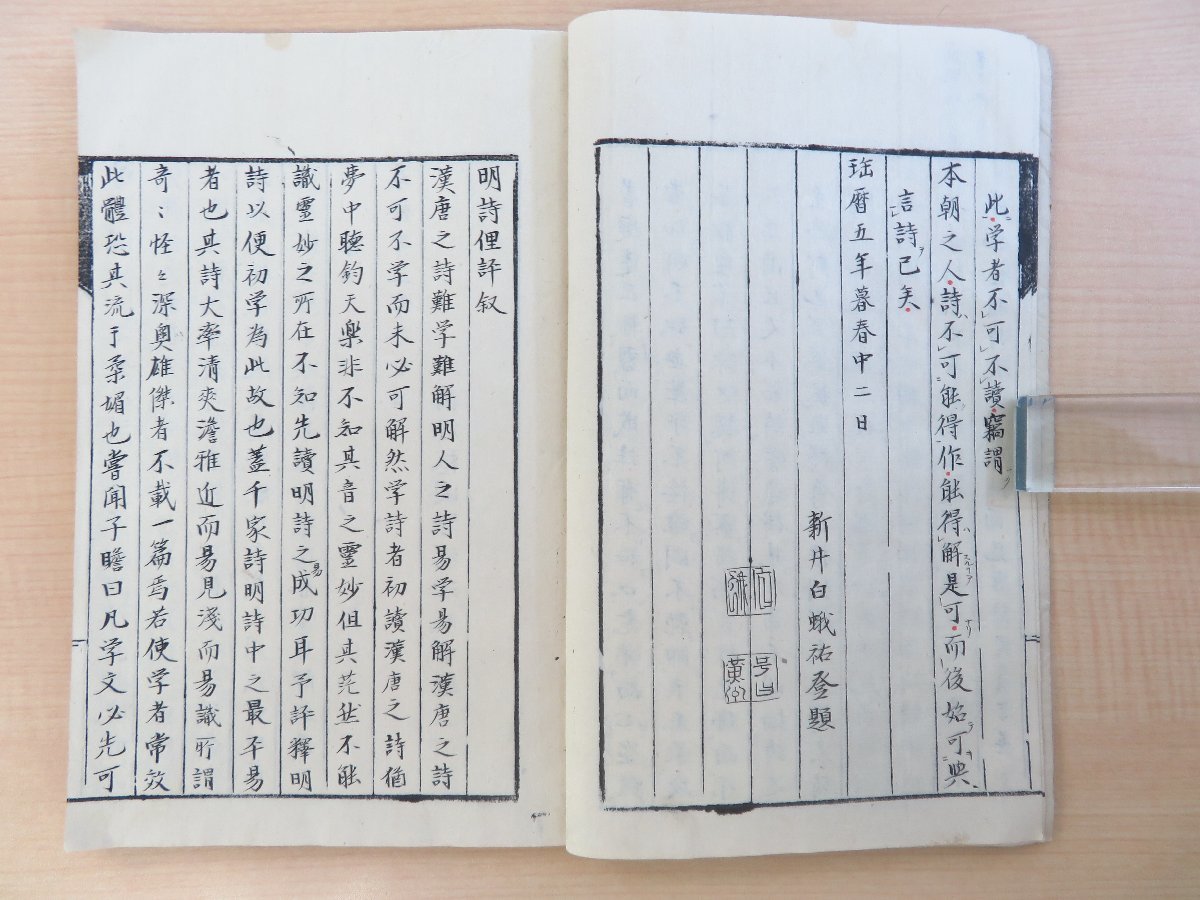 此学者不可不讀竊謂
本朝之人詩不可能得作能得解是可而後始可與
言詩已矣
珤曆五年暮春中二日
新井白蛾祐登題
明詩俚評叙
漢唐之詩難学難解明人之詩易学易解漢唐之詩
不可不学而未必可解然学詩者初讀漢唐之詩猶
夢中聽鈞天樂非不知其音之靈妙但其茫然不能
識靈妙之所在不知先讀明詩之易成功耳予評釋明
詩以便初学為此故也蓋千家詩明詩中之最平易
者也其詩大率清爽澹雅近而易見淺而易識所謂
奇〻怪〻深奧雄傑者不載一篇焉若使学者常效
此體恐其流于柔媚也嘗聞子瞻曰凡学文必先可